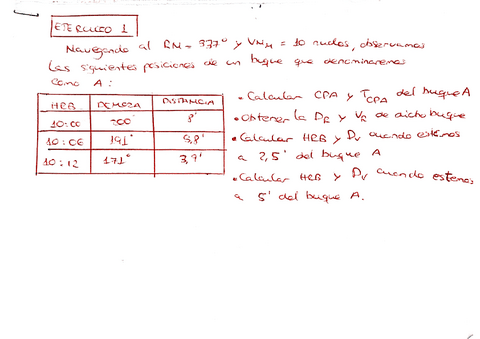 EJERCICIO 1
Navegando al RM = 337° y VMM = 10 nudos, observamos
las siguientes posiciones de un buque que denominaremos
como A:
HRB DEMORA DISTANCIA
10:00 200° 8'
10:06 191° 5,8'
10:12 171° 3,9'
• Calcular CPA y TCPA del buque A
• Obtener la DR y VR de dicho buque
• Calcular HRB y DV cuando estemos
a 2,5' del buque A
• Calcular HRB y DV cuando estemos
a 5' del buque A.